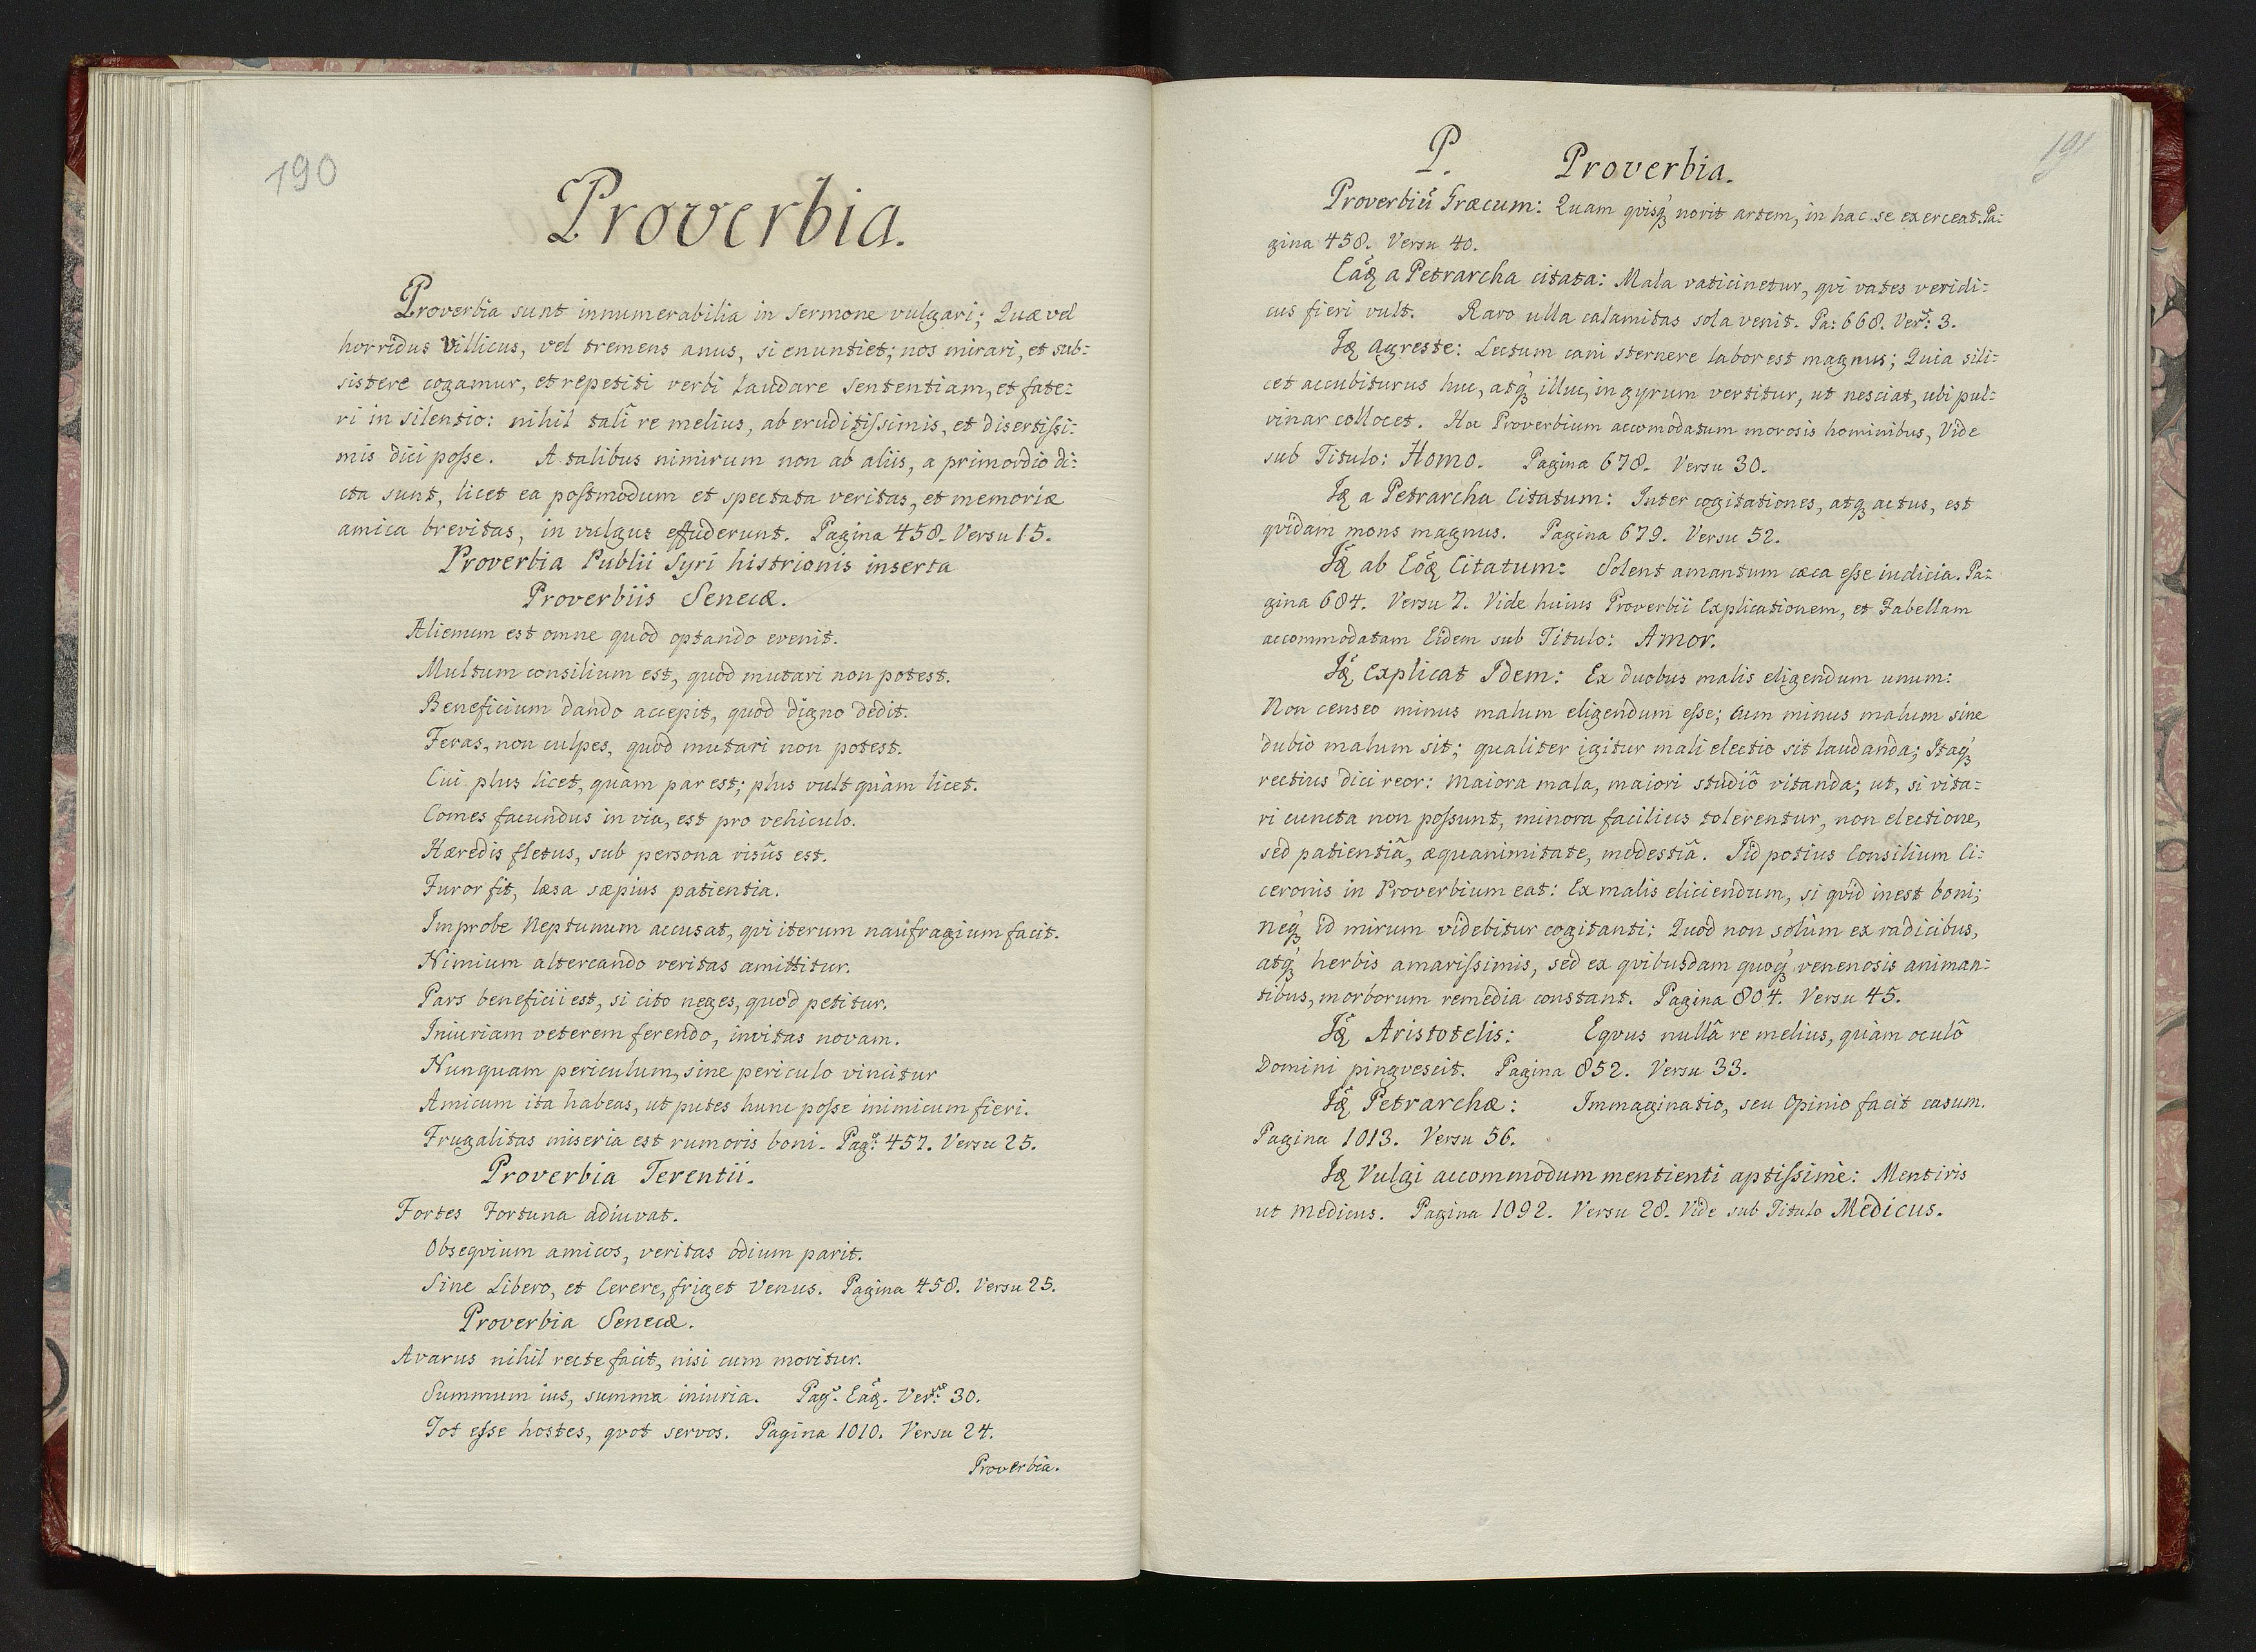 190
Proverbia.
Proverbia sunt innumerabilia in sermone vulgari; Quæ vel
horridus villicus, vel tremens anus, si enuntiet; nos mirari, et sub:
sistere cogamur, et repetiti verbi laudare sententiam, et fate:
ri in silentio: nihil talî re melius, ab eruditiſsimis, et disertiſsi:
mis dici poſse. A talibus nimirum non ab aliis, a primordio di:
cta sunt, licet ea poſtmodum et spectata veritas, et memoriæ
amica brevitas, in vulgus effuderunt. Pagina 458. Versu 15.
Proverbia Publii Syri histrionis inserta
Proverbiis Senecæ.
Alienum est omne quod optando evenit.
Multum consilium est, quod mutari non potest.
Beneficium dando accepit, quod digno dedit.
Feras, non culpes, quod mutari non potest.
Cui plus licet, quàm par est; plus vult quàm licet.
Comes facundus in via, est pro vehiculo.
Hæredis fletus, sub persona risûs est.
Furor fit, læsa sæpius patientia.
Improbe Neptunum accusat, qvi iterum naufragium facit.
Nimium altercando veritas amittitur.
Pars beneficii est, si cito neges, quod petitur.
Iniuriam veterem ferendo, invitas novam.
Nunquam periculum, sine periculo vincitur
Amicum ita habeas, ut putes hunc poſse inimicum fieri.
Frugalitas miseria est rumoris boni. Pagª: 457. Versu 25.
Proverbia Terentii.
Fortes Fortuna adiuvat.
Obseqvium amicos, veritas odium parit.
Sine Libero, et Cerere, friget Venus. Pagina 458. Versu 25.
Proverbia Senecæ.
Avarus nihil recte facit, nisi cum moritur.
Summum ius, summa iniuria. Pagª. Eâꝗ. Verˢᵘ: 30.
Tot eſse hostes, qvot servos. Pagina 1010. Versu 24.
Proverbia.
191
P. Proverbia.
Proverbiũ Græcum: Quam qvisqꝫ norit artem, in hac se exerceat. Pa:
gina 458. Versu 40.
Eãꝗ a Petrarcha citata: Mala vaticinetur, qvi vates veridi:
cus fieri vult. Raro ulla calamitas sola venit. Pa: 668. Verˢ: 3.
Iꝗ Agreste: Lectum cani sternere labor est magnus; Quia sili:
cet accubiturus huc, atqꝫ illuc, in gyrum vertitur, ut nesciat, ubi pul:
vinar collocet. Hoc Proverbium accomodatum morosis hominibus, Vide
sub Titulo: Homo. Pagina 678. Versu 30.
Iꝗ a Petrarcha Citatum: Inter cogitationes, atqꝫ actus, est
qvidam mons magnus. Pagina 679. Versu 52.
Iꝗ ab Eôꝗ Citatum: Solent amantum cæca eſse iudicia. Pa:
gina 684. Versu 7. Vide huius Proverbii Explicationem, et Fabellam
accommodatam Eidem sub Titulo: Amor.
Iꝗ Explicat Idem: Ex duobus malis eligendum unum:
Non censeo minus malum eligendum eſse; cum minus malum sine
dubio malum sit; qualiter igitur mali electio sit laudanda; Itaqꝫ
rectius dici reor: maiora mala, maiori studiô vitanda; ut, si vita:
ri cuncta non poſsunt, minora facilius tolerentur, non electione,
sed patientiâ, æquanimitate, modestiâ. Iid potius Consilium Ci:
ceronis in Proverbium eat: Ex malis eliciendum, si qvid inest boni;
neqꝫ id mirum videbitur cogitanti: Quod non solùm ex radicibus,
atqꝫ herbis amariſsimis, sed ex qvibusdam quoqꝫ venenosis animan:
tibus, morborum remedia constant. Pagina 804. Versu 45.
Iꝗ Aristotelis: Eqvus nullâ re melius, quàm oculô
Domini pingvescit. Pagina 852. Versu 33.
Iꝗ Petrarchæ: Immaginatio, seu Opinio facit casum.
Pagina 1013. Versu 56.
Iꝗ Vulgi accommodum mentienti aptiſsimè: Mentiris
ut medicus. Pagina 1092. Versu 28. Vide sub Titulo Medicus.